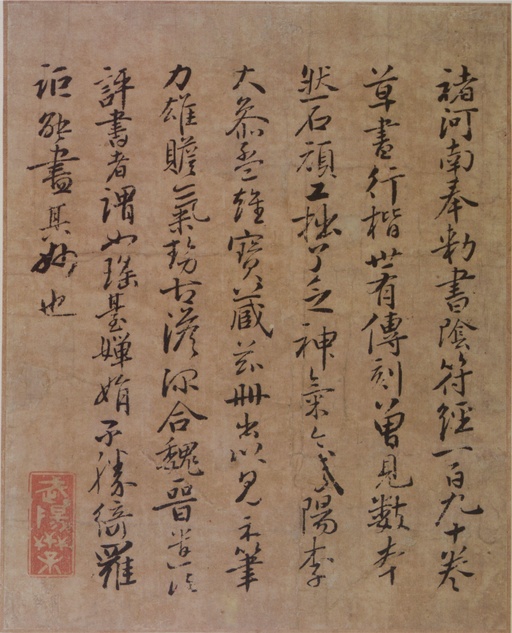 褚河南奉勅書陰符經一百九十卷
草書行楷世有傳刻曾見數本
然石頑工拙了乏神氣今陽李
大參孟雄寶藏茲冊出以見示筆
力雄贍氣勢古澹深合魏晉法
評書者謂如瑤臺嬋娟不勝綺羅
詎能盡其妙也